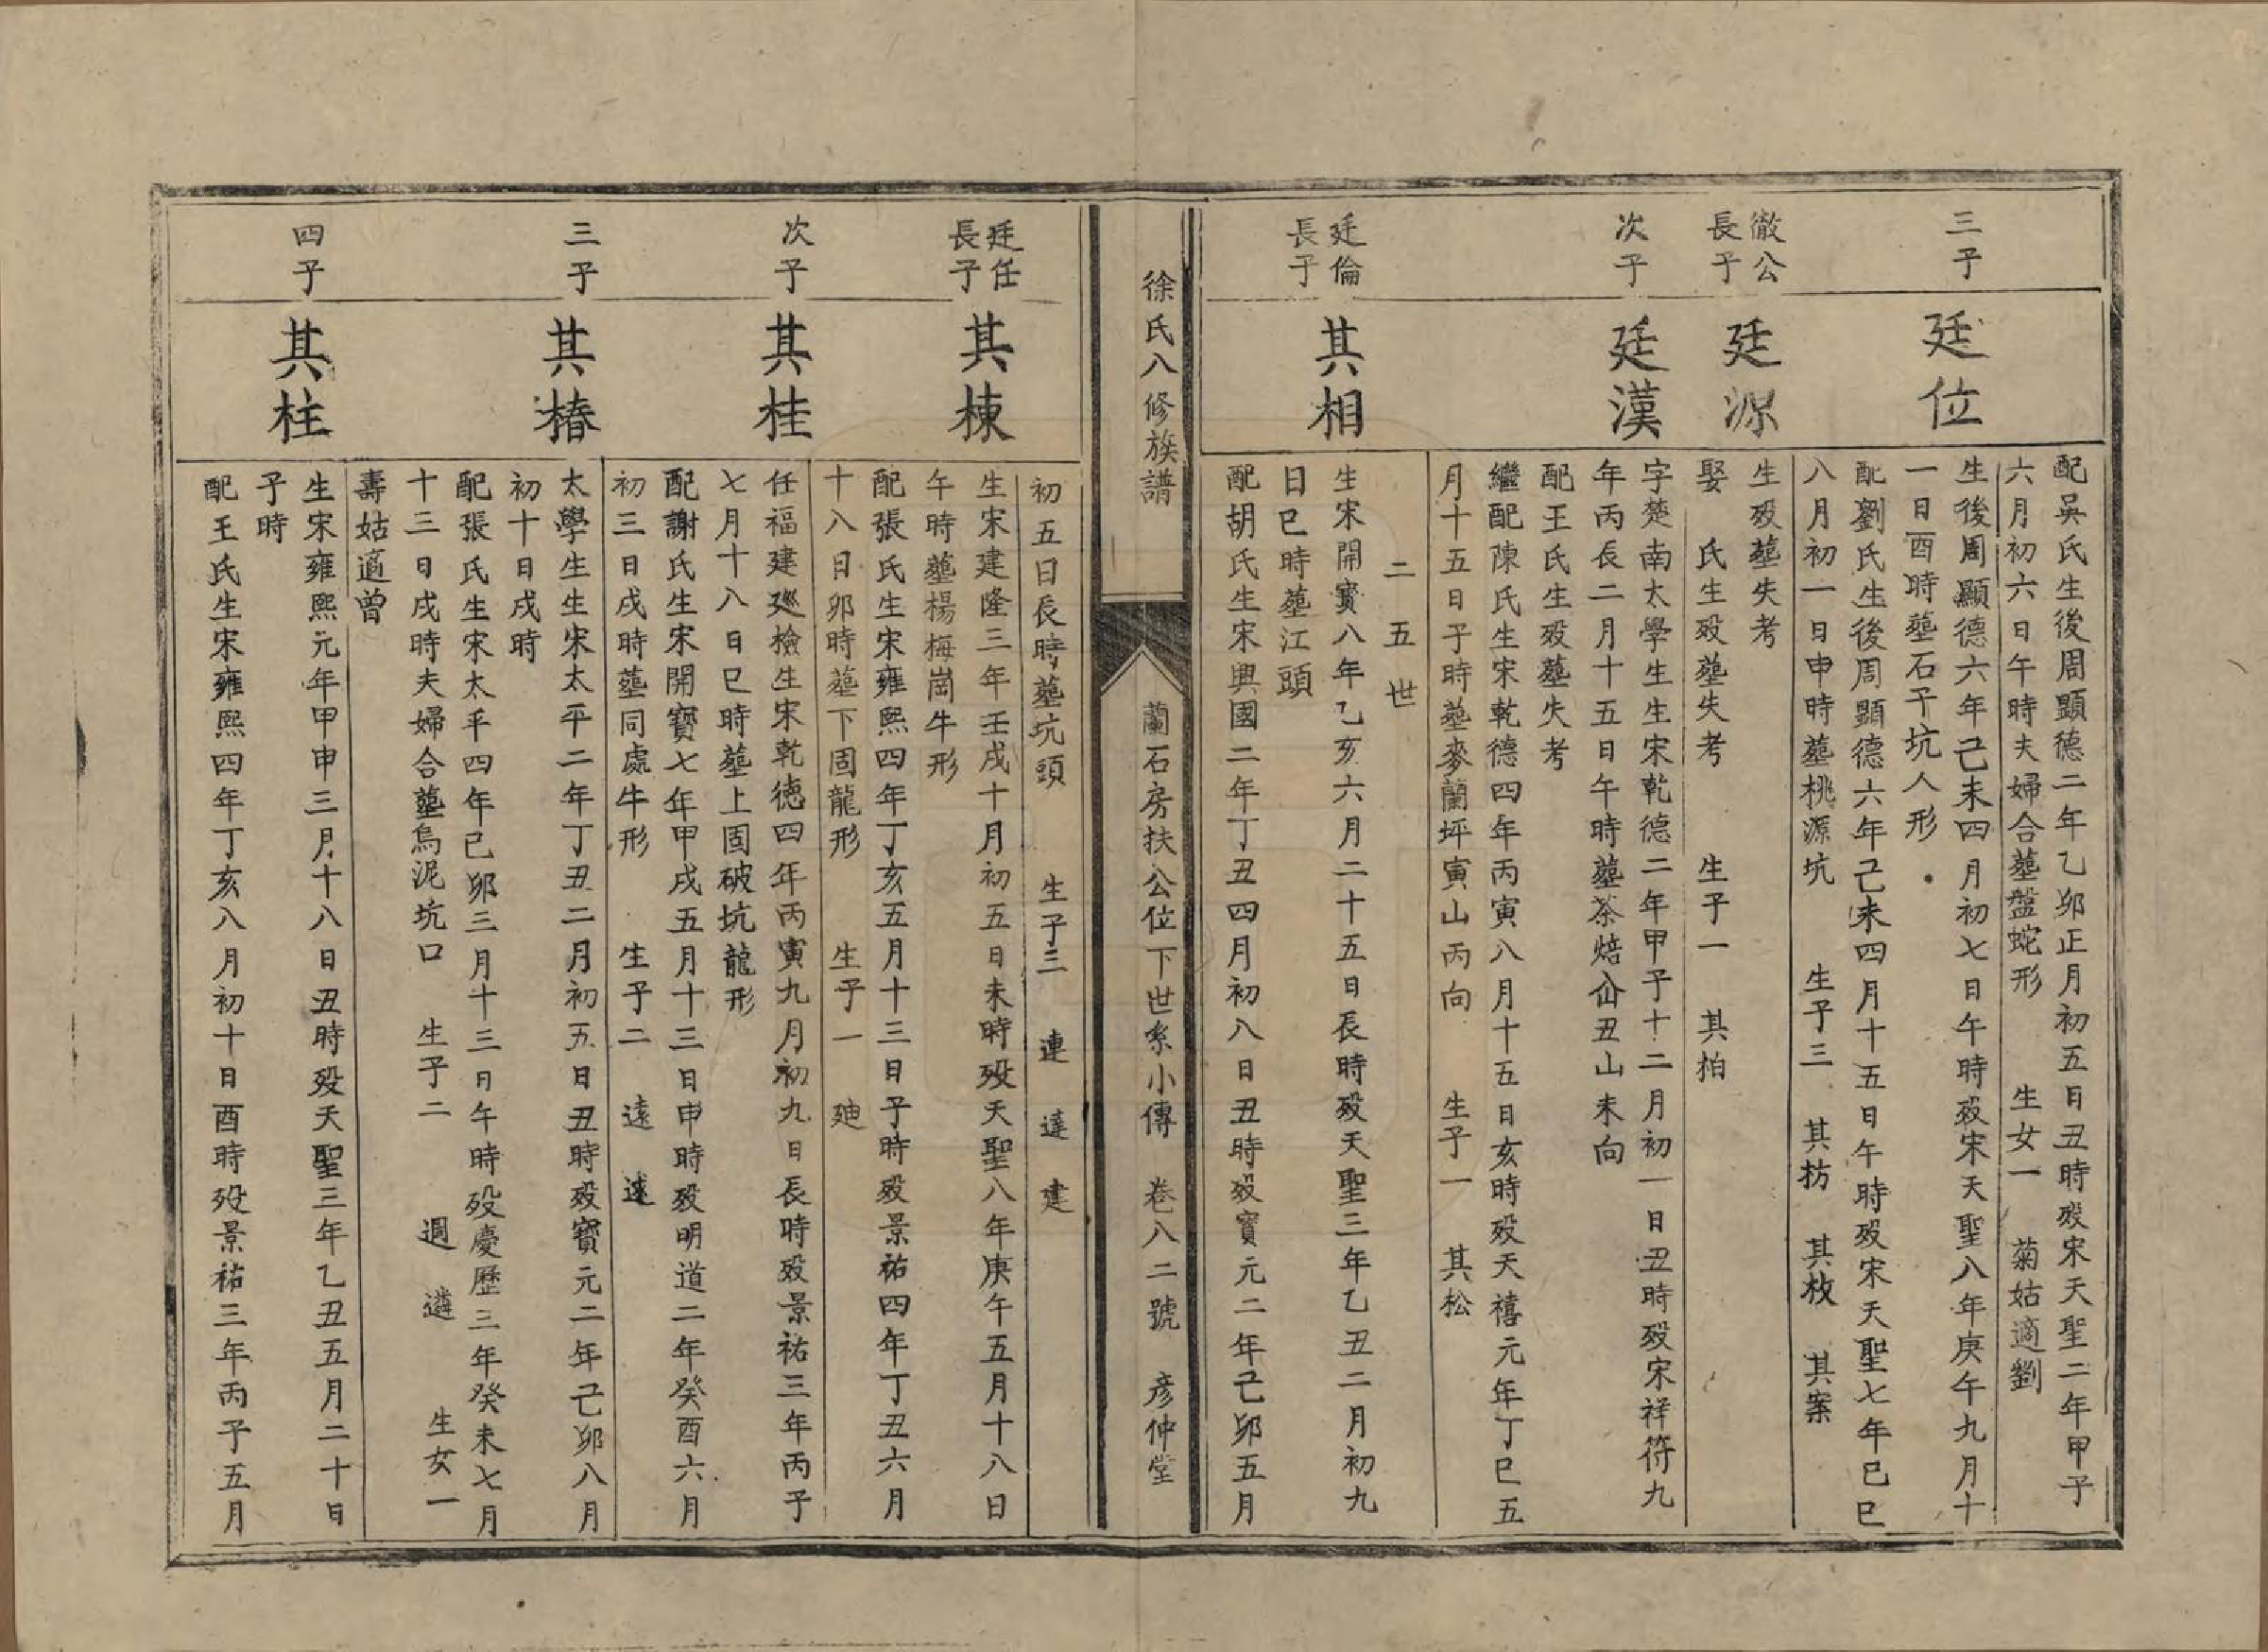 配吳氏生後周顯德二年乙卯正月初五日丑時歿宋天聖二年甲子
六月初六日午時夫婦合墓盤蛇形 生女一 菊姑適劉
三子
廷位
生後周顯德六年己未四月初七日午時歿宋天聖八年庚午九月十
一日酉時墓石子坑人形
配劉氏生後周顯德六年己未四月十五日午時歿宋天聖七年巳巳
八月初一日申時墓桃源坑 生子三 其枋 其枚 其案
徹公長子
廷源
生歿墓失考
娶 氏生歿墓失考 生子一 其柏
次子
廷漢
字楚南太學生生宋乾德二年甲子十二月初一日丑時歿宋祥符九
年丙長二月十五日午時墓茶焙仚丑山未向
配王氏生歿墓失考
繼配陳氏生宋乾德四年丙寅八月十五日亥時歿天禧元年丁巳五
月十五日子時墓麥蘭坪寅山丙向 生子一 其松
二五世
廷倫長子
其相
生宋開寶八年乙亥六月二十五日長時歿天聖三年乙丑二月初九
日巳時墓江頭
配胡氏生宋興國二年丁丑四月初八日丑時歿寶元二年己卯五月
徐氏八修族譜
蘭石房扶公位下世系小傳 卷八二號 彥仲堂
初五日長時墓坑頭 生子三 連 達 建
廷任長子
其棟
生宋建隆三年壬戌十月初五日未時歿天聖八年庚午五月十八日
午時墓楊梅崗牛形
配張氏生宋雍熙四年丁亥五月十三日子時歿景祐四年丁丑六月
十八日卯時墓下固龍形 生子一 廸
次子
其桂
任福建廵檢生宋乾德四年丙寅九月初九日長時歿景祐三年丙子
七月十八日巳時墓上固破坑龍形
配謝氏生宋開寶七年甲戌五月十三日申時歿明道二年癸酉六月
初三日戌時墓同處牛形 生子二 遠 速
三子
其椿
太學生生宋太平二年丁丑二月初五日丑時歿寶元二年己卯八月
初十日戌時
配張氏生宋太平四年己卯三月十三日午時歿慶歷三年癸未七月
十三日戌時夫婦合墓烏泥坑口 生子二 週 遴 生女一
壽姑適曾
四子
其柱
生宋雍熙元年甲申三月十八日丑時歿天聖三年乙丑五月二十日
子時
配王氏生宋雍熙四年丁亥八月初十日酉時歿景祐三年丙子五月